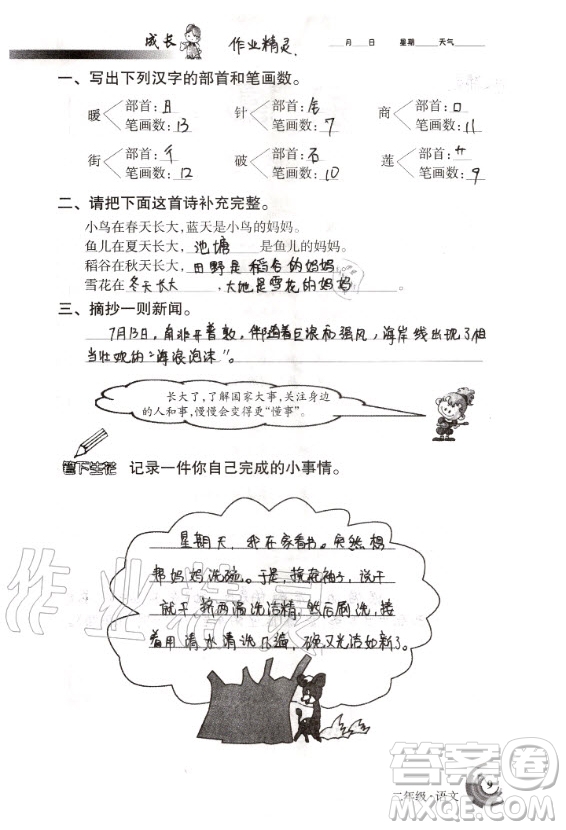 成长 作业精灵. 月 日 星期 天气
一、写出下列汉字的部首和笔画数。
暖 部首：日 笔画数：13 针 部首：钅 笔画数：7 商 部首：口 笔画数：11
街 部首：彳 笔画数：12 破 部首：石 笔画数：10 莲 部首：艹 笔画数：9
二、请把下面这首诗补充完整。
小鸟在春天长大，蓝天是小鸟的妈妈。
鱼儿在夏天长大，池塘是鱼儿的妈妈。
稻谷在秋天长大，田野是稻谷的妈妈
雪花在冬天长大，大地是雪花的妈妈
三、摘抄一则新闻。
7月13日，南非开普敦，伴随着巨浪和强风，海岸线出现了相
当壮观的“海浪泡沫”。
长大了，了解国家大事，关注身边
的人和事，慢慢会变得更“懂事”。
笔下生花 记录一件你自己完成的小事情。
星期天，我在家看书。突然想
帮妈妈洗碗。于是，挽起袖子，说干
就干，挤两滴洗洁精，然后刷洗，接
着用清水清洗几遍，碗又光洁如新了。
作业精灵
答案圈
二年级·语文 9